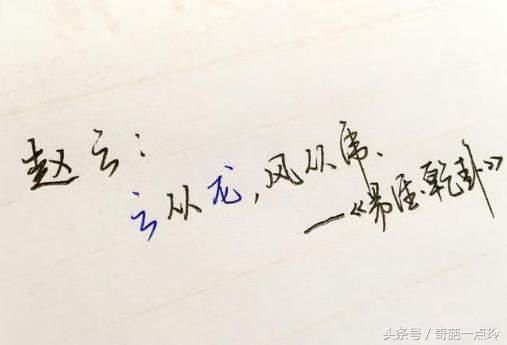 赵云：
云从龙，风从虎、
—《易经·乾卦》
头条号 / 奇葩一点玲